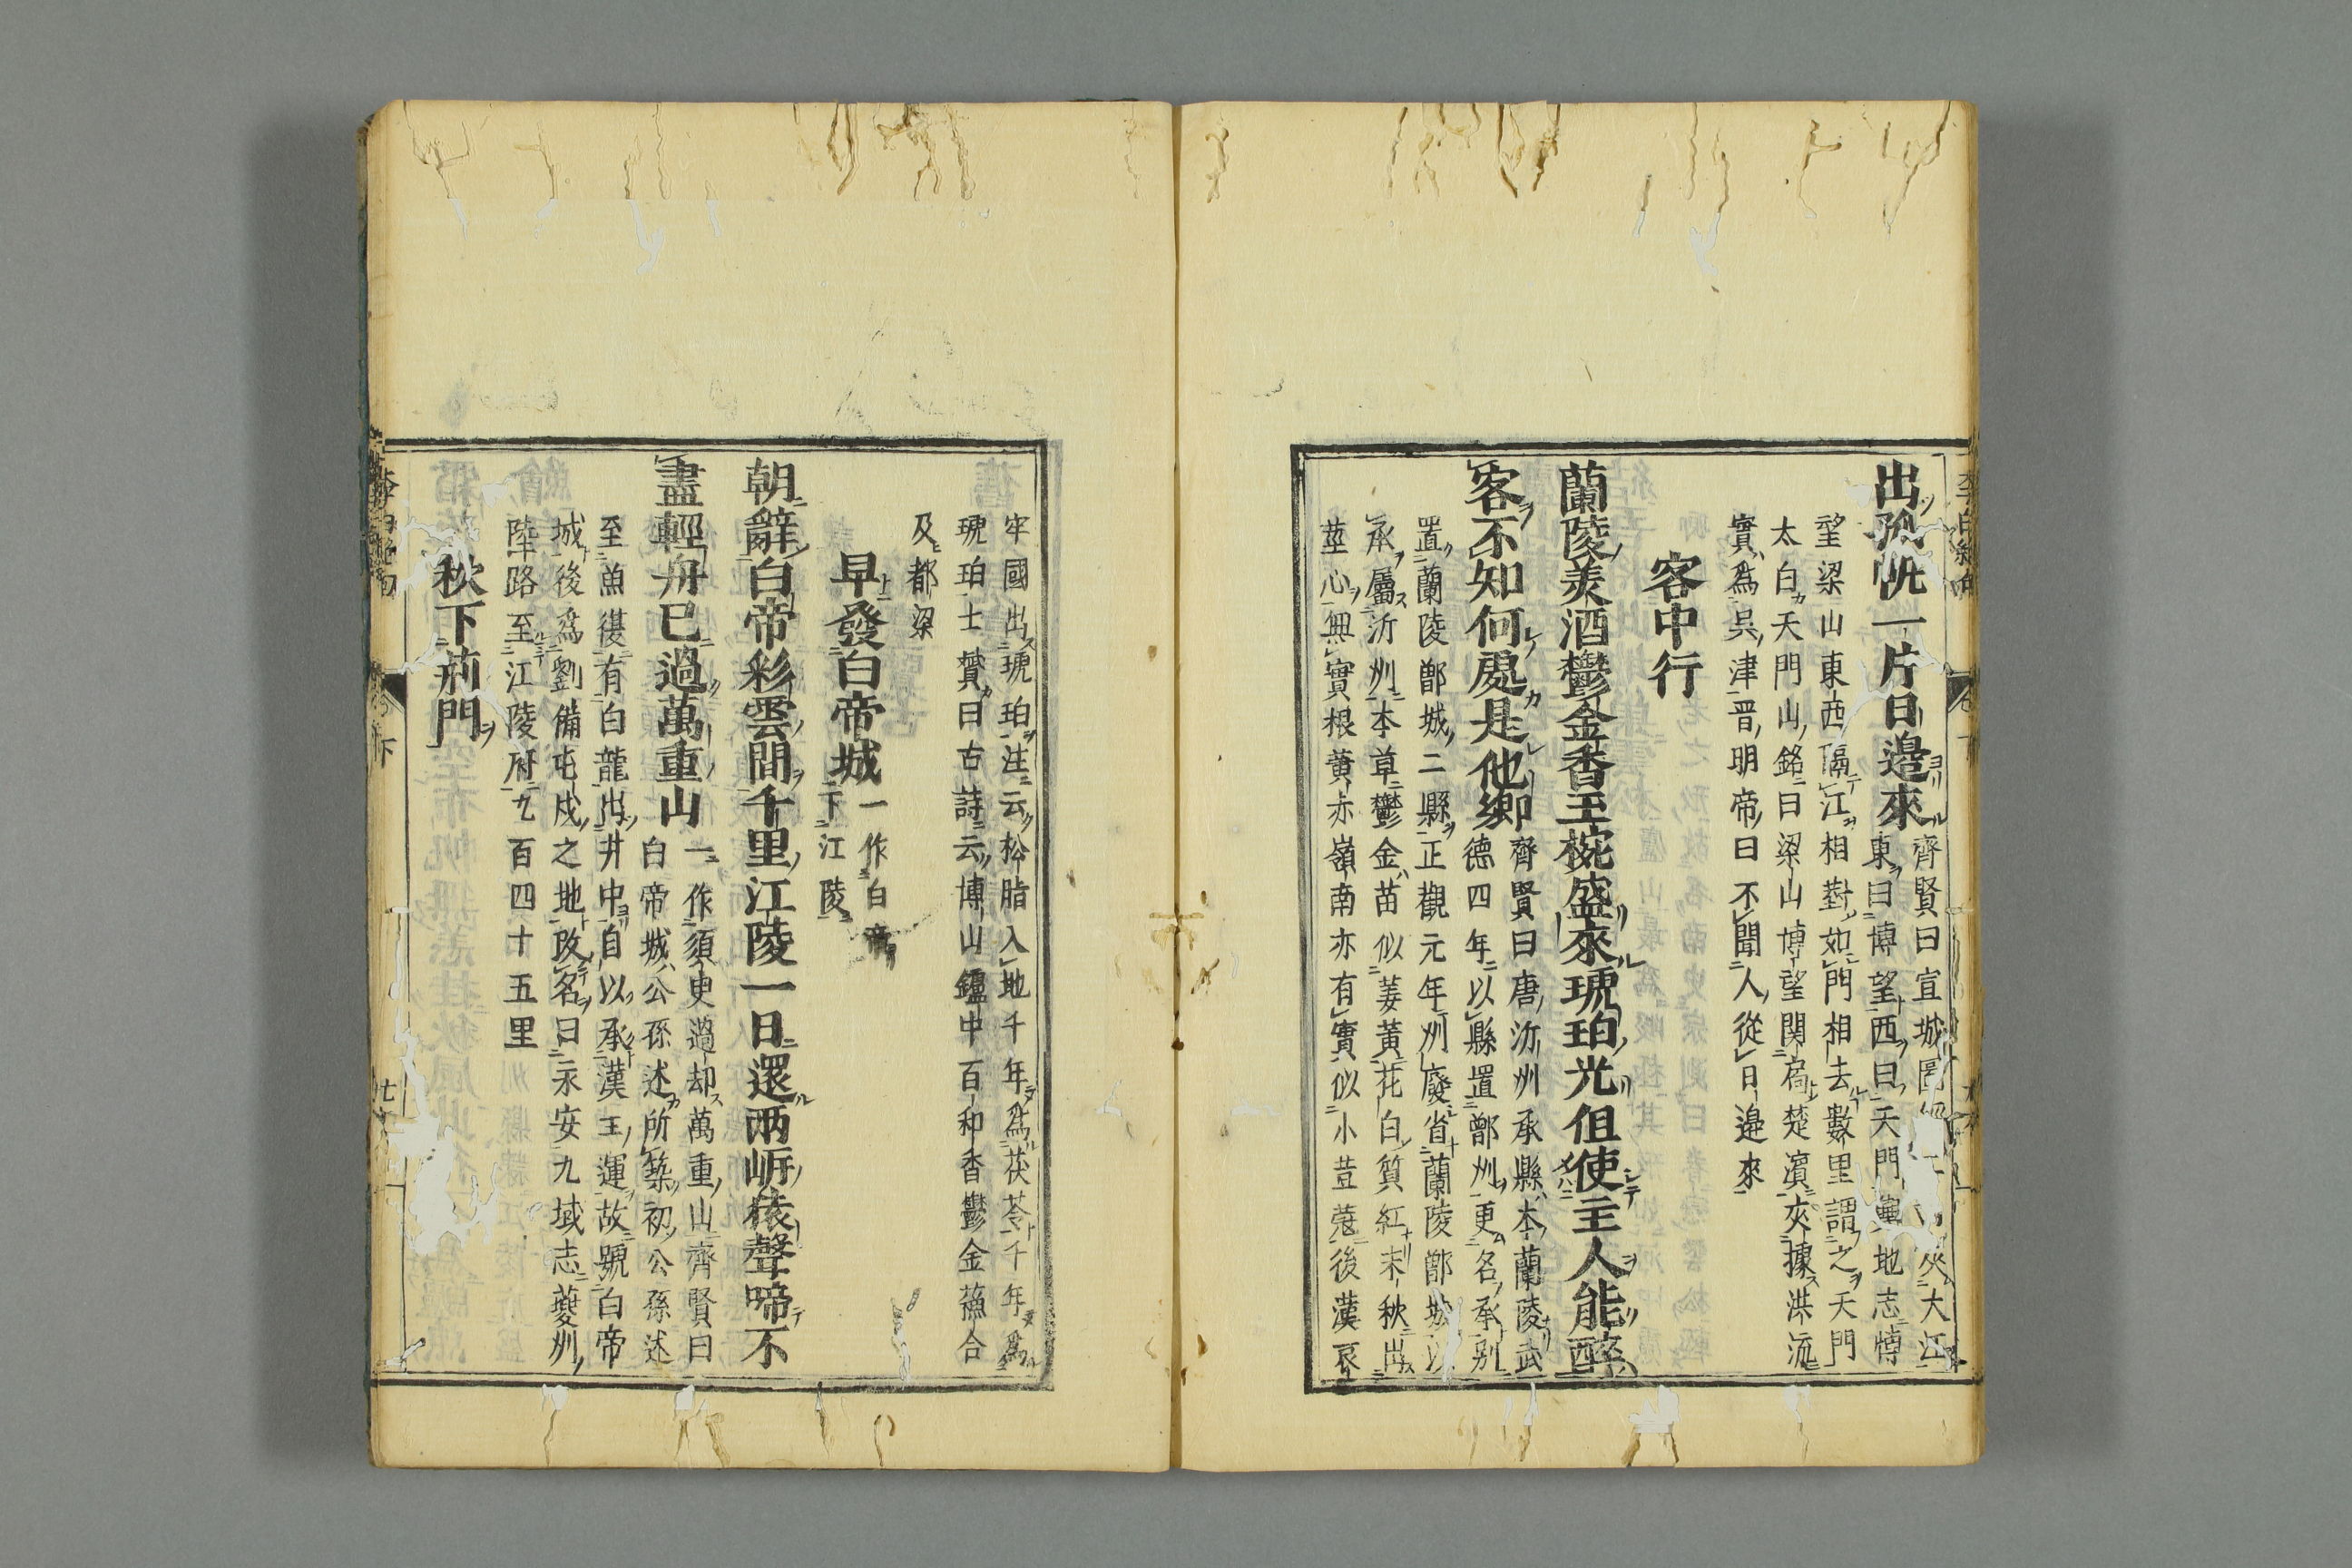 出孤帆一片日邉來
齊賢曰宣城圖 夾大江
東曰博望西曰天門輿地志博
望梁山東西隔江相對如門相去數里謂之天門
太白天門山銘曰梁山博望関扃楚濵夾據洪流
實爲吳津晋明帝曰不聞人從日邉來
客中行
蘭陵美酒鬱金香玉椀盛來琥珀光但使主人能醉
客不知何處是他鄉
齊賢曰唐沂州承縣本蘭陵武
德四年以縣置鄫州更名承別
置蘭陵鄫城二縣正觀元年州廢省蘭陵鄫城以
承屬沂州本草鬱金苗似姜黃花白質紅末秋出
莖心興實根黄赤嶺南亦有實似小荳蔻後漢哀
牢國出琥珀注云松脂入地千年爲茯苓千年爲
琥珀士贇曰古詩云博山鑪中百和香鬱金蘓合
及都梁
早發白帝城
一作白帝
下江陵
朝辭白帝彩雲間千里江陵一日還兩岍猿聲啼不
盡輕舟已過萬重山
一作須臾過却萬重山齊賢曰
白帝城公孫述所築初公孫述
至魚復有白龍出井中自以承漢王運故號白帝
城後爲劉備屯戍之地改名曰永安九域志夔州
陸路至江陵府九百四十五里
秋下荊門